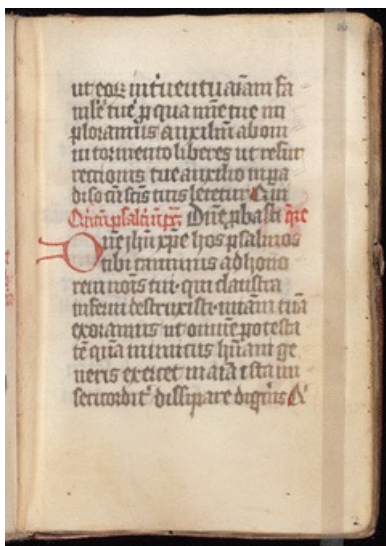 ut eoꝝ intuentu aīam fa
mlē tue ꝓ qua mīe tue im
ploramus auxiliū ab om
ni tormento liberes ut resur
rectionis tue auxilio in pa
diso cū sctīs tuis letetur
Dn̄e ꝓbasti me
Dn̄e jhu xp̄e hos psalmos
tibi cantamus ad hono
rem nois tui qui claustra
inferni destruxisti mīam tuā
exoramus ut omnē potesta
tē quā inimicus hūani ge
neris exercet in aīa ista mi
sericordit dissipare digīris